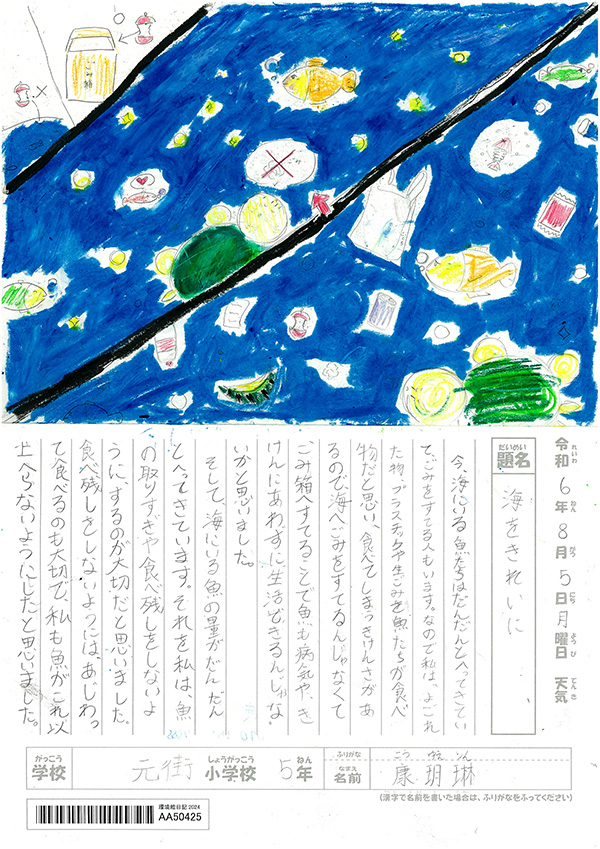 ごみ箱
令和6年8月5日月曜日 天気
れいわ ねん がつ にち ようび てんき
だいめい
題名 海をきれいに
今、海にいる魚たちはだんだんとへってきてい
て、ごみをすてる人もいます。なので私は、よごれ
た物、プラスチックや生ごみを魚たちが食べ
物だと思い、食べてしまうきけんさがあ
るので海へごみをすてるんじゃなくて
ごみ箱へすてることで魚も病気や、き
けんにあわずに生活できるんじゃな
いかと思いました。
そして、海にいる魚の量がだんだん
とへってきています。それを私は、魚
の取りすぎや食べ残しをしないよ
うにするのが大切だと思いました。
食べ残しをしないようにはあじわっ
て食べるのも大切で、私も魚がこれ以
上へらないようにしたと思いました。
がっこう しょうがっこう ねん ふりがな こう ゆえ りん
学校 元街 小学校 5年 なまえ 名前 康玥琳
(漢字で名前を書いた場合は、ふりがなをふってください)
環境絵日記2024
AA50425